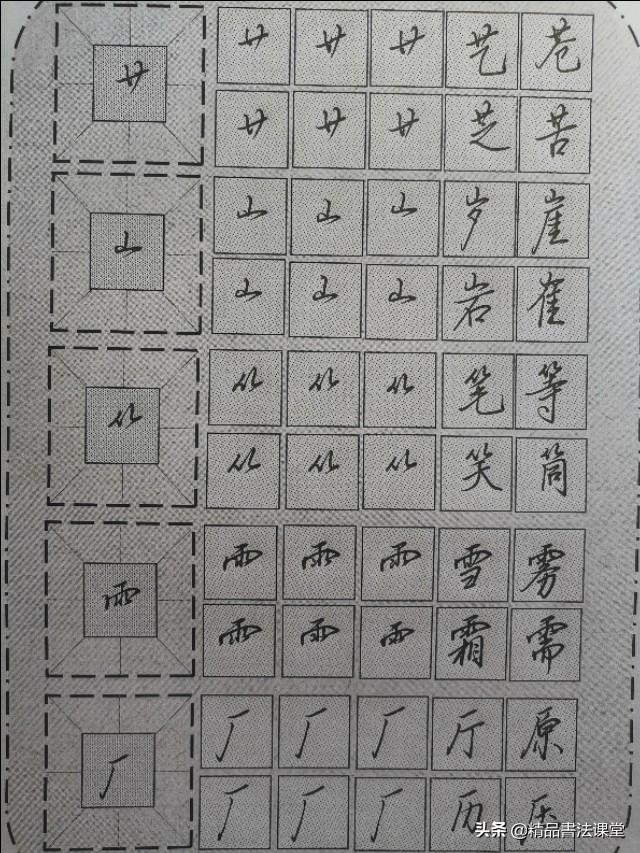 艹
艹 艹 艹 艺
艹 艹 艹 芝 苦
山
山 山 山 岁 崖
山 山 山 岩 崔
⺮
⺮ ⺮ ⺮ 笔 等
⺮ ⺮ ⺮ 笑 筒
雨
雨 雨 雨 雪 雾
雨 雨 雨 霜 需
厂
厂 厂 厂 厅 原
厂 厂 厂 历
头条 @精品書法课堂